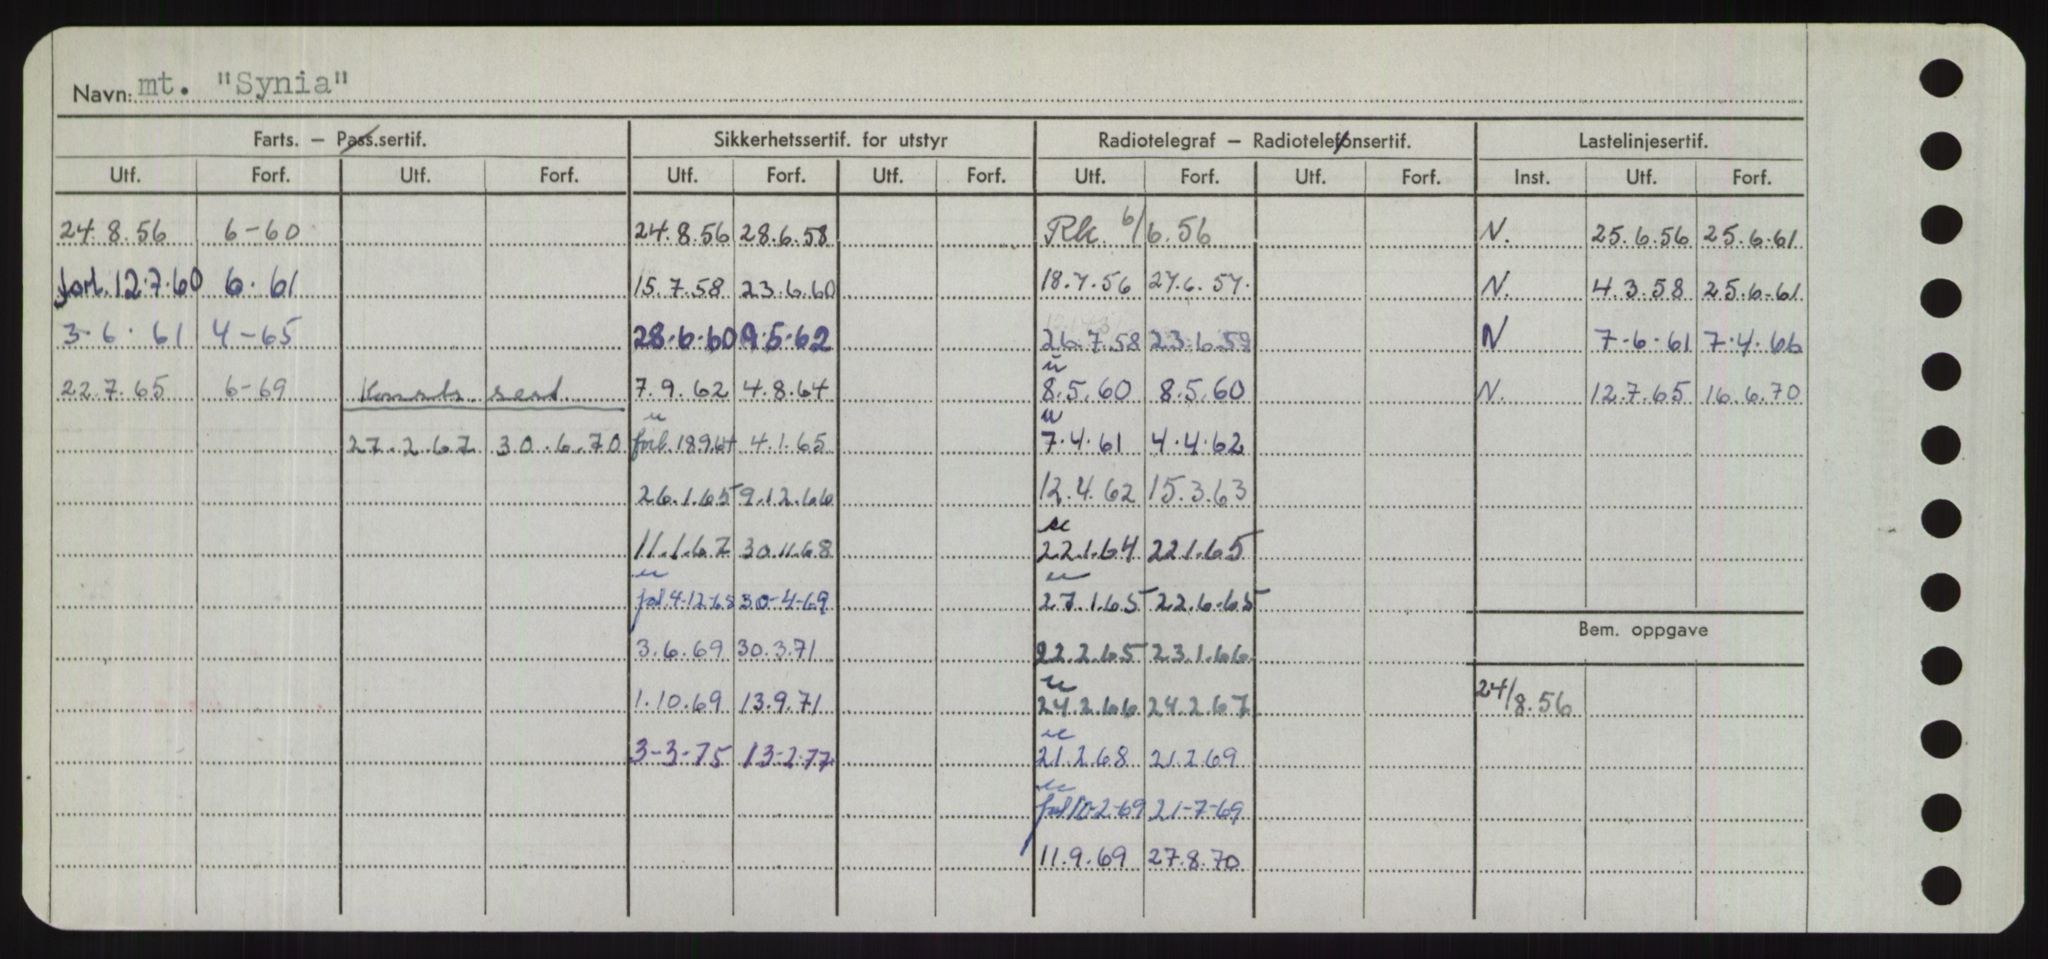 Navn: mt. "Synia"
Farts. — Pass.sertif. Sikkerhetssertif. for utstyr Radiotelegraf — Radiotelefonsertif. Lastelinjesertif.
Utf. Forf. Utf. Forf. Utf. Forf. Utf. Forf. Utf. Forf. Utf. Forf. Inst. Utf. Forf.
24.8.56 6-60 24.8.56 28.6.58 Rk. 6/6.56 N. 25.6.56 25.6.61
forl. 12.7.60 6.61 15.7.58 23.6.60 18.7.56 27.6.57. N. 4.3.58 25.6.61
3-6.61 4-65 28.6.60 9.5.62 26.7.58 23.6.59 N 7-6-61 7.4.66
22.7.65 6-69 sert 7.9.62 4.8.64 u 8.5.60 8.5.60 N. 12.7.65 16.6.70
27.2.67 30.6.70 u forl. 18.9.64 4.1.65 u 7.4.61 4.4.62
26.1.65 9.12.66 12.4.62 15.3.63
11.1.67 30.11.68 u 22.1.64 22.1.65
u forl 4-12-68 30-4-69 u 27.1.65 22.6.65
3.6.69 30.3.71 22.2.65 23.1.66
Bem. oppgave
1.10.69 13.9.71 u 24.2.66 24.2.67 24/8.56
3-3-75 13-2-77 u 21.2.68 21.2.69
u forl 10-2-69 21-7-69
11.9.69 27.8.70